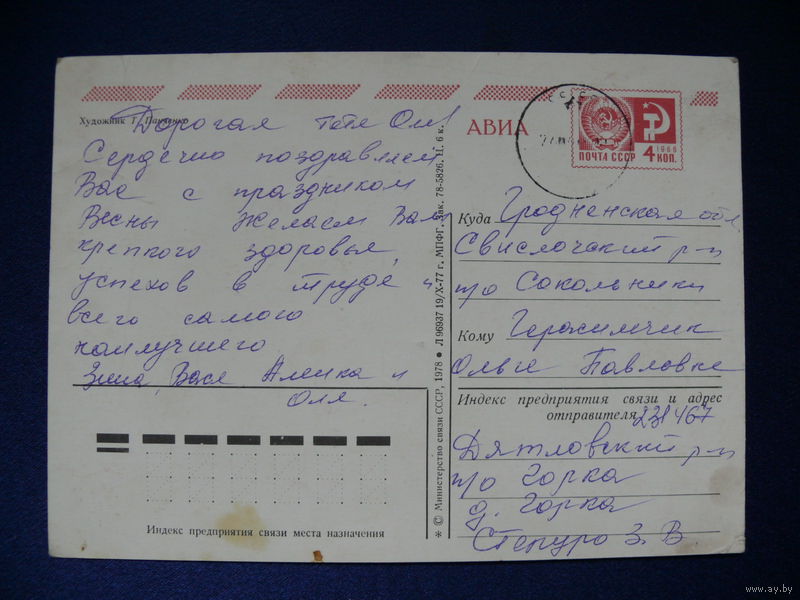 Художник Т. Панченко
Дорогая тетя Оля!
Сердечно поздравляем
Вас с праздником
Весны желаем Вам
крепкого здоровья,
успехов в труде и
всего самого
наилучшего
Зина, Вася Аленка и
Оля.
Индекс предприятия связи места назначения
* © Министерство связи СССР, 1978 ● Л 96937 19/X-77 г. МПФГ. Зак. 78-5826. Ц. 6 к.
АВИА
ПОЧТА СССР 4 КОП.
1966
Куда Гродненская обл
Свислочский р-н
п/о Сокольники
Кому Герасимчик
Ольге Павловне
Индекс предприятия связи и адрес
отправителя 231467
Дятловский р-н
п/о Горка
д. Горка
Степуро З. В
www.ay.by